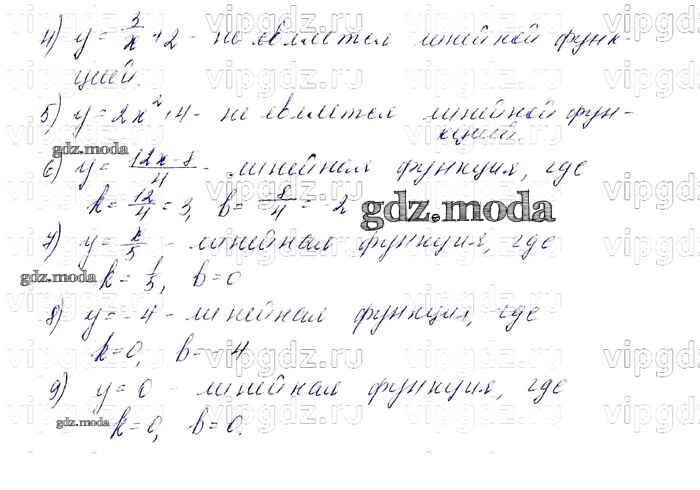 4) y = 3/x + 2 - не является линейной функ-
цией.
5) y = 2x² + 4 - не является линейной фун-
кцией.
gdz.moda
6) y = (12x-8)/4 - линейная функция, где
k = 12/4 = 3, b = -8/4 = -2
gdz.moda
7) y = x/3 - линейная функция, где
gdz.moda
k = 1/3, b = 0
8) y = -4 - линейная функция, где
k=0, b = -4
9) y = 0 - линейная функция, где
gdz.moda
k = 0, b = 0.
vipgdz.ru